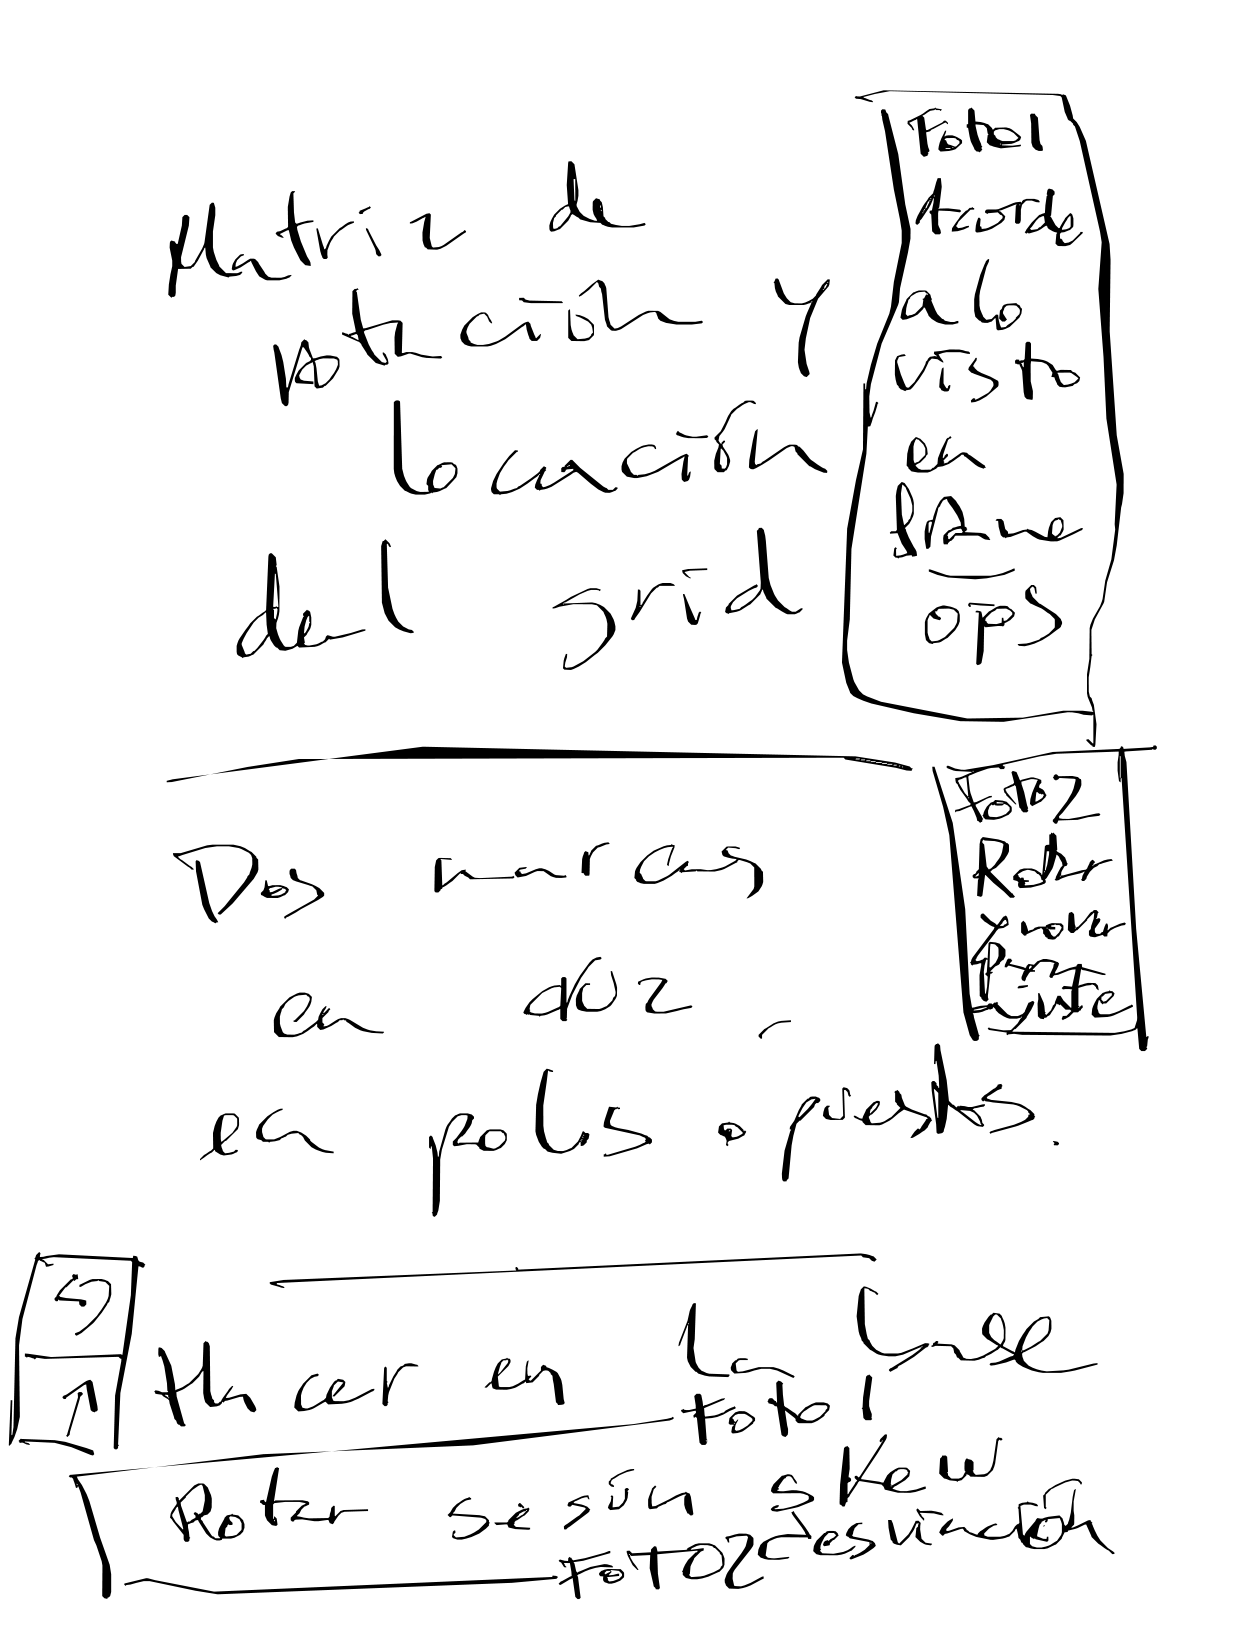 Matriz de
rotación y
locación
del grid
Foto1
Acorde
a lo
visto
en
frame
ops
Dos marcas
en
en polos opuestos.
Foto2
Rotar
y mover
para
ajuste
Hacer en la base
Foto 1
Rotar según skew
FOTO2 desviación